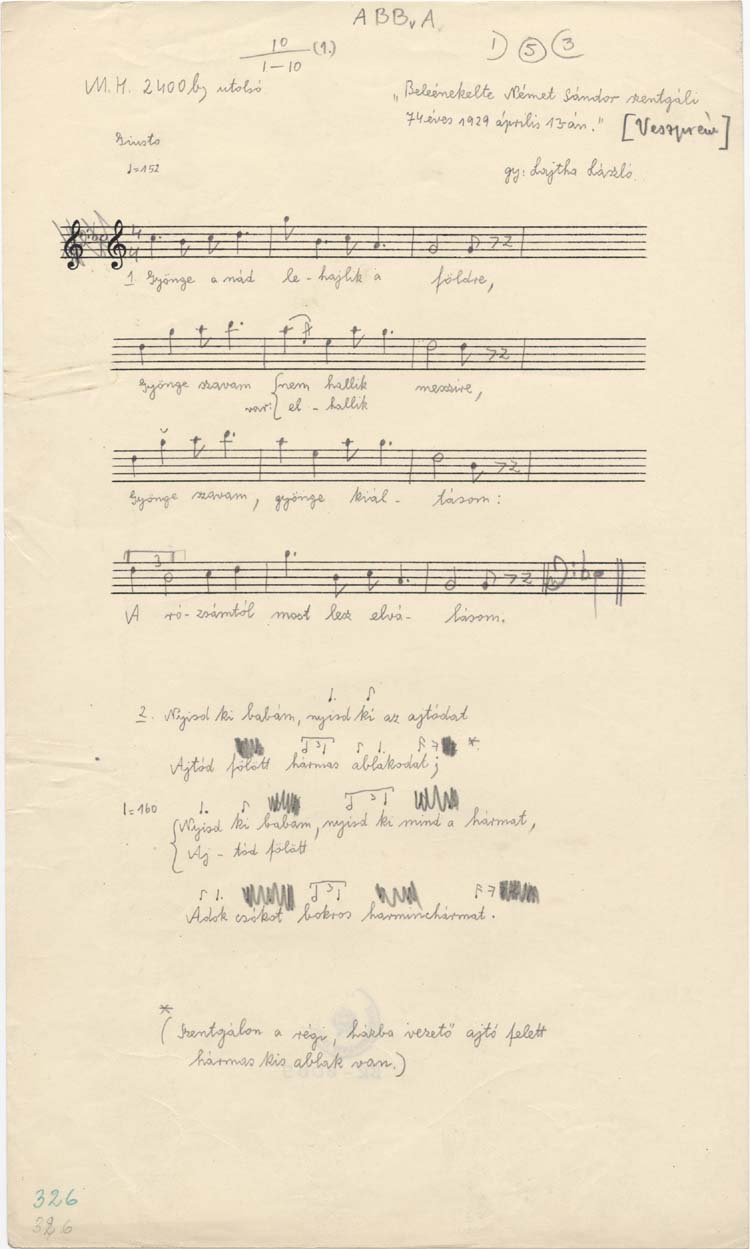 A B Bv A
10 (1.)
1-10
1) 5 3
M.H. 2400 b, utolsó
"Beleénekelte Német Sándor szentgáli
74 éves 1929 április 13-án." [Veszprém]
Giusto
♩=152
gy: Lajtha László.
4
4
1 Gyönge a nád le-hajlik a földre,
Gyönge szavam {nem hallik messzire,
var: {el-hallik
Gyönge szavam, gyönge kiál-tásom:
3
A ró-zsámtól most lesz elvá-lásom.
2. Nyisd ki babám, nyisd ki az ajtódat
3 *
Ajtód fölött hármas ablakodat;
♩=160 3
{Nyisd ki babám, nyisd ki mind a hármat,
{Aj-tód fölött
3
Adok csókot bokros harminchármat.
*
(Szentgálon a régi, házba vezető ajtó felett
hármas kis ablak van.)
326
326